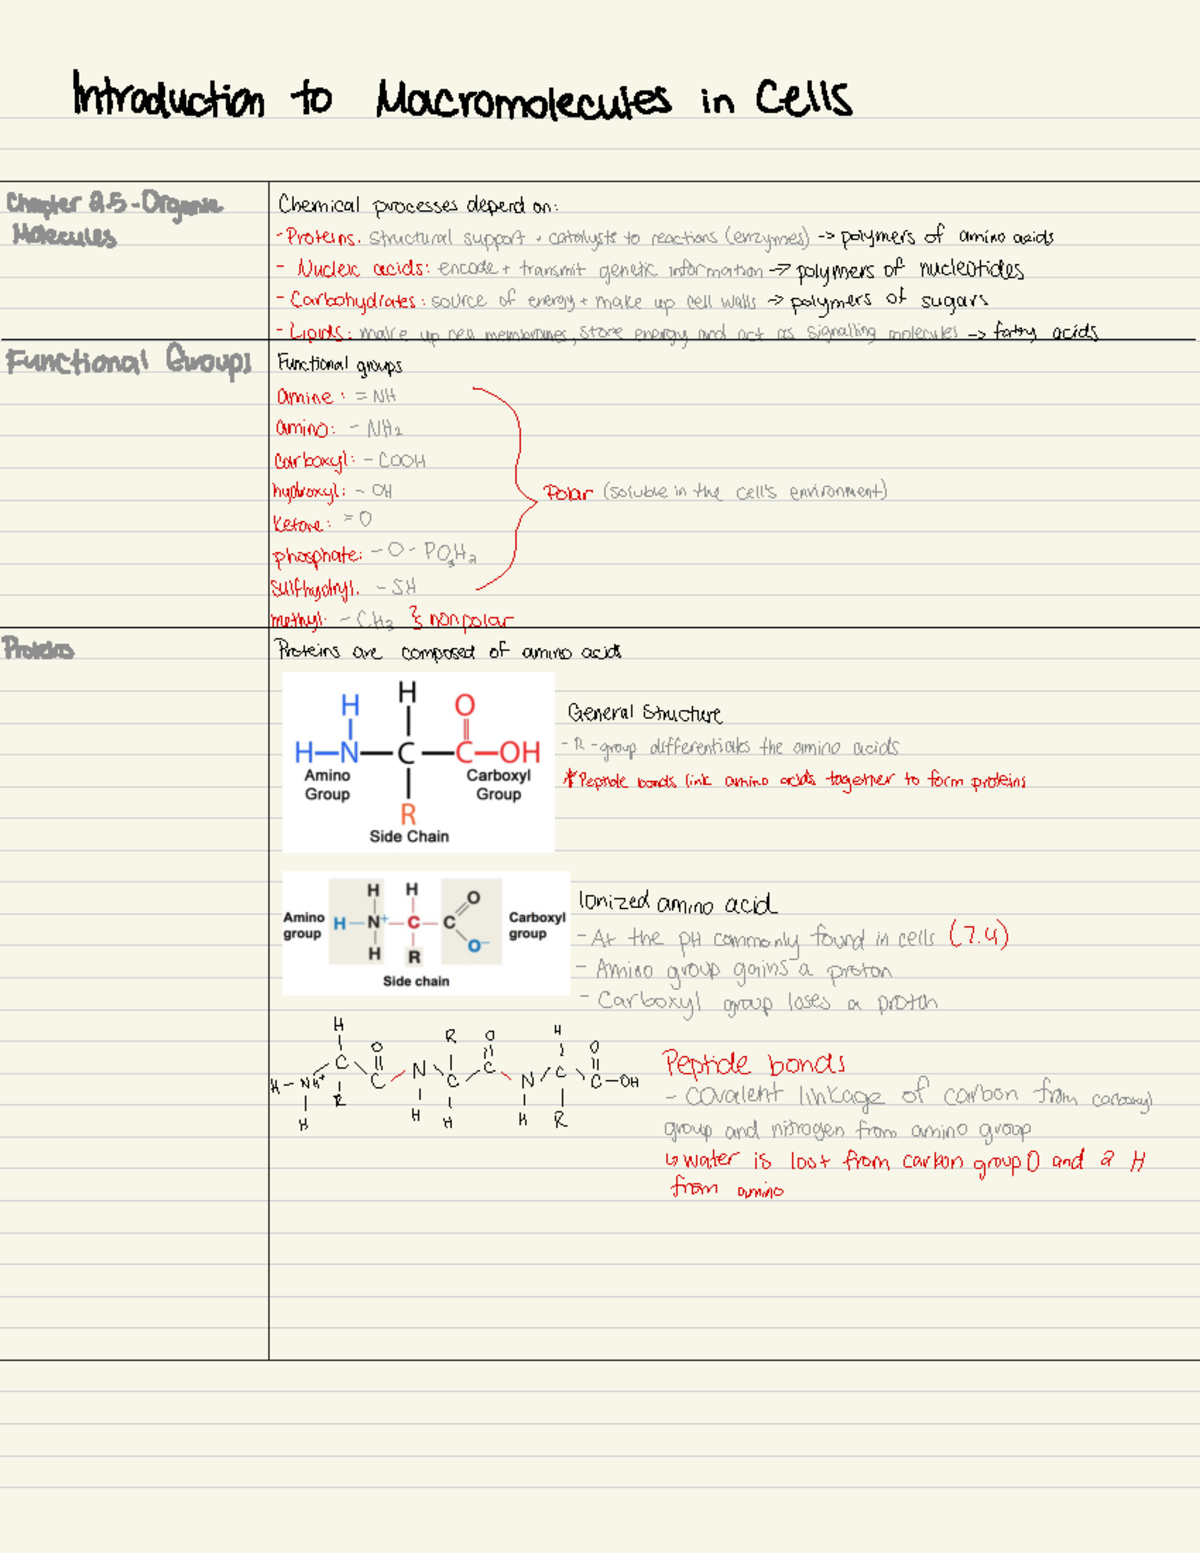 Introduction to Macromolecules in Cells
Chapter 2.5 - Organic
Molecules
Chemical processes depend on:
- Proteins: structural support + catalysts to reactions (enzymes) -> polymers of amino acids
- Nucleic acids: encode + transmit genetic information -> polymers of nucleotides
- Carbohydrates: source of energy + make up cell walls -> polymers of sugars
- Lipids: make up cell membranes, store energy and act as signalling molecules -> fatty acids
Functional Groups
Functional groups
amine: = NH
amino: - NH2
carboxyl: - COOH
hydroxyl: - OH
Ketone: = O
phosphate: - O - PO3H2
sulfhydryl: - SH
methyl: - CH3 } nonpolar
Polar (soluble in the cell's environment)
Proteins
Proteins are composed of amino acids
H
H O
H-N-C-C-OH
Amino Group
Carboxyl Group
R
Side Chain
General Structure
- R-group differentiates the amino acids
* Peptide bonds link amino acids together to form proteins
H H O
Amino group
H-N+-C-C
Carboxyl group
O-
H R
Side chain
Ionized amino acid
- At the pH commonly found in cells (7.4)
- Amino group gains a proton
- Carboxyl group loses a proton
H R O H O
C O N C C N C C-OH
H-NH+ R C
H H H H R
Peptide bonds
- covalent linkage of carbon from carboxyl
group and nitrogen from amino group
↳ water is lost from carbon group O and 2 H
from amino